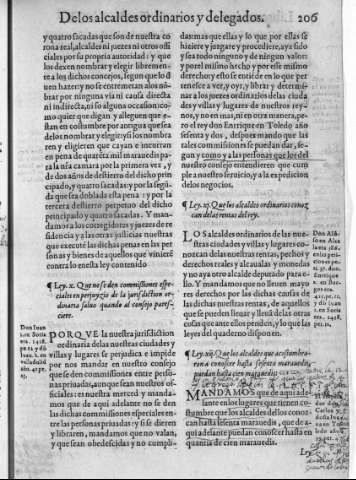 De los alcaldes ordinarios y delegados. 206
y quatro sacadas que son de nuestra co
rona real, alcaldes ni juezes ni otros offi
ciales por su propria autoridad: y que
los dexen nombrar y elegir libremen-
te a los dichos concejos, segun que lo d
uen hazer: y no se entremetan a los nõ-
brar por ninguna via ni causa directa
ni indirecta, ni so alguna occasion: co-
mo quier que digan y alleguen que e-
stan en costumbre por antigua que sea
de los nombrar y elegir: y si los nombra
ren y eligieren que cayan e incurran
en pena de quarẽta mil maravedis pa-
ra la nr̃a camara por la primera vez, y
de dos años de destierro del dicho prin
cipado, y quatro sacadas: y por la segũ-
da que sea doblada esta pena: y por la
tercera destierro perpetuo del dicho
principado y quatro sacadas. Y man-
damos a los corregidores y juezes de re
sidencia y a las otras justicias nuestras
que executẽ las dichas penas en las per
sonas y bienes de aquellos que vinierẽ
contra lo en esta ley contenido.
¶ Ley. x. Que no se den commissiones espe-
ciales en perjuyzio de la jurisdiction or-
dinaria saluo quando al consejo pares-
ciere.
Don Iuan
PORQVE la nuestra jurisdiction
ordinaria de las nuestras ciudades y
villas y lugares se perjudica e impide
por nos mandar en nuestro consejo
que se den commissiones entre perso-
nas priuadas, aun que sean nuestros of-
ficiales: es nuestra merced y manda-
mos que de aqui adelante no se den
las dichas commissiones especiales en-
tre las personas priuadas: y si se dieren
y libraren, mandamos que no valan,
y que sean obedescidas, y no cumpli-
das: mas que ellas y lo que por ellas se
hiziere y juzgare y procediere, aya sido
y sea todo ninguno y de ningun valor:
y por el mismo hecho y por esse mismo
derecho y esto se entiẽde en lo que per
tenesce a ver, y oyr, y librar y determi-
nar a los juezes ordinarios de las ciuda
des y villas y lugares de nuestros rey-
nos, y no en mas, ni en otra manera, pe-
ro el rey don Enrrique en Toledo año
sesenta y dos, despues mando que las
tales commissiones se puedan dar, se-
gun y como y a las personas que los del
nuestro consejo entendieren que cum
ple a nuestro seruicio, y a la expedicion
de los negocios.
¶ Ley. xj. Que los alcaldes ordinarios conoz
can de las rentas del rey.
LOS alcaldes ordinarios de las nue-
stras ciudades y villas y lugares co-
nozcan de las nuestras rentas, pechos y
derechos reales y alcaualas y monedas
y no aya otro alcalde deputado para e-
llo. Y mandamos que no lleuen mayo
res derechos por las dichas causas de
las dichas nuestras rentas, de aquellos
que se pueden lleuar y lleuã de las otras
cosas que ante ellos penden, y lo que las
leyes del quaderno disponen.
¶ Ley. xij. Que los alcaldes que acostumbra-
ron a conoscer hasta sesenta marauedis,
puedan hasta mil marauedis
MANDAMOS que de aqui ade
lante en los lugares que tienen co
stumbre que los alcaldes dellos conoz-
can hasta sesenta marauedis, que de a-
qui adelante puedan conoscer hasta en
quantia de cien marauedis.
Ley